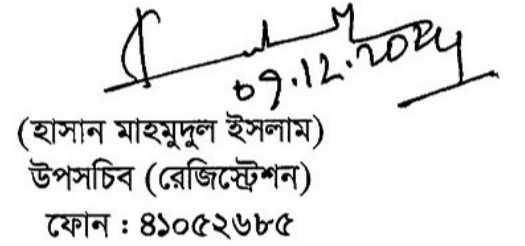 09.12.2024
(হাসান মাহমুদুল ইসলাম)
উপসচিব (রেজিস্ট্রেশন)
ফোন : ৪১০৫২৬৮৫